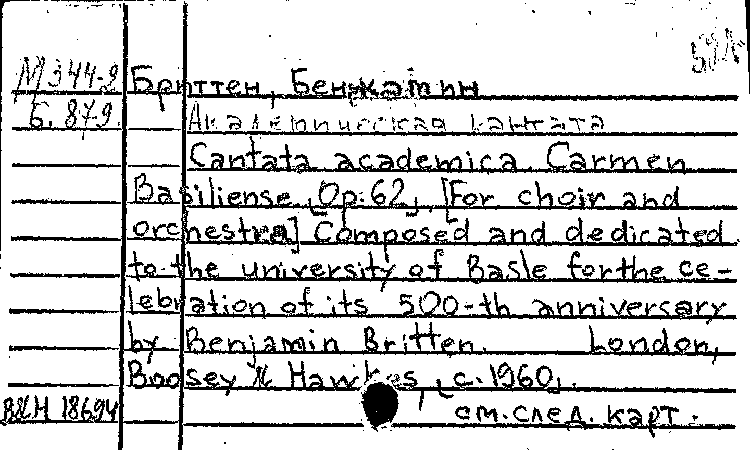 М344-2 Бриттен, Бенжамин
Б.879. Академическая кантата
Cantata academica. Carmen
Basiliense, Op. 62, [For choir and
orchestra] Composed and dedicated
to the university of Basle for the ce-
lebration of its 500-th anniversary
by Benjamin Britten. London,
Boosey & Hawkes, c. 1960.
18694 см. след. карт.